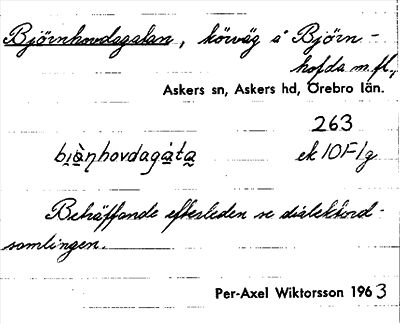 Björnhovdagatan, körväg å Björn-
hofda m.fl.,
Askers sn, Askers hd, Örebro län.
263
bi̯ä̀ɳhovdagàta ek 10F1g
Beträffande efterleden se dialektord-
samlingen.
Per-Axel Wiktorsson 1963